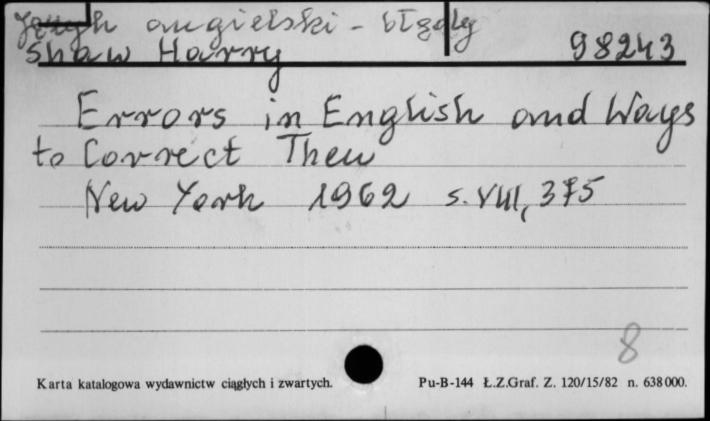 język angielski - błędy
Shaw Harry 98243
Errors in English and Ways
to Correct Them
New York 1962 s. VIII, 375
8
Karta katalogowa wydawnictw ciągłych i zwartych. Pu-B-144 Ł.Z.Graf. Z. 120/15/82 n. 638000.